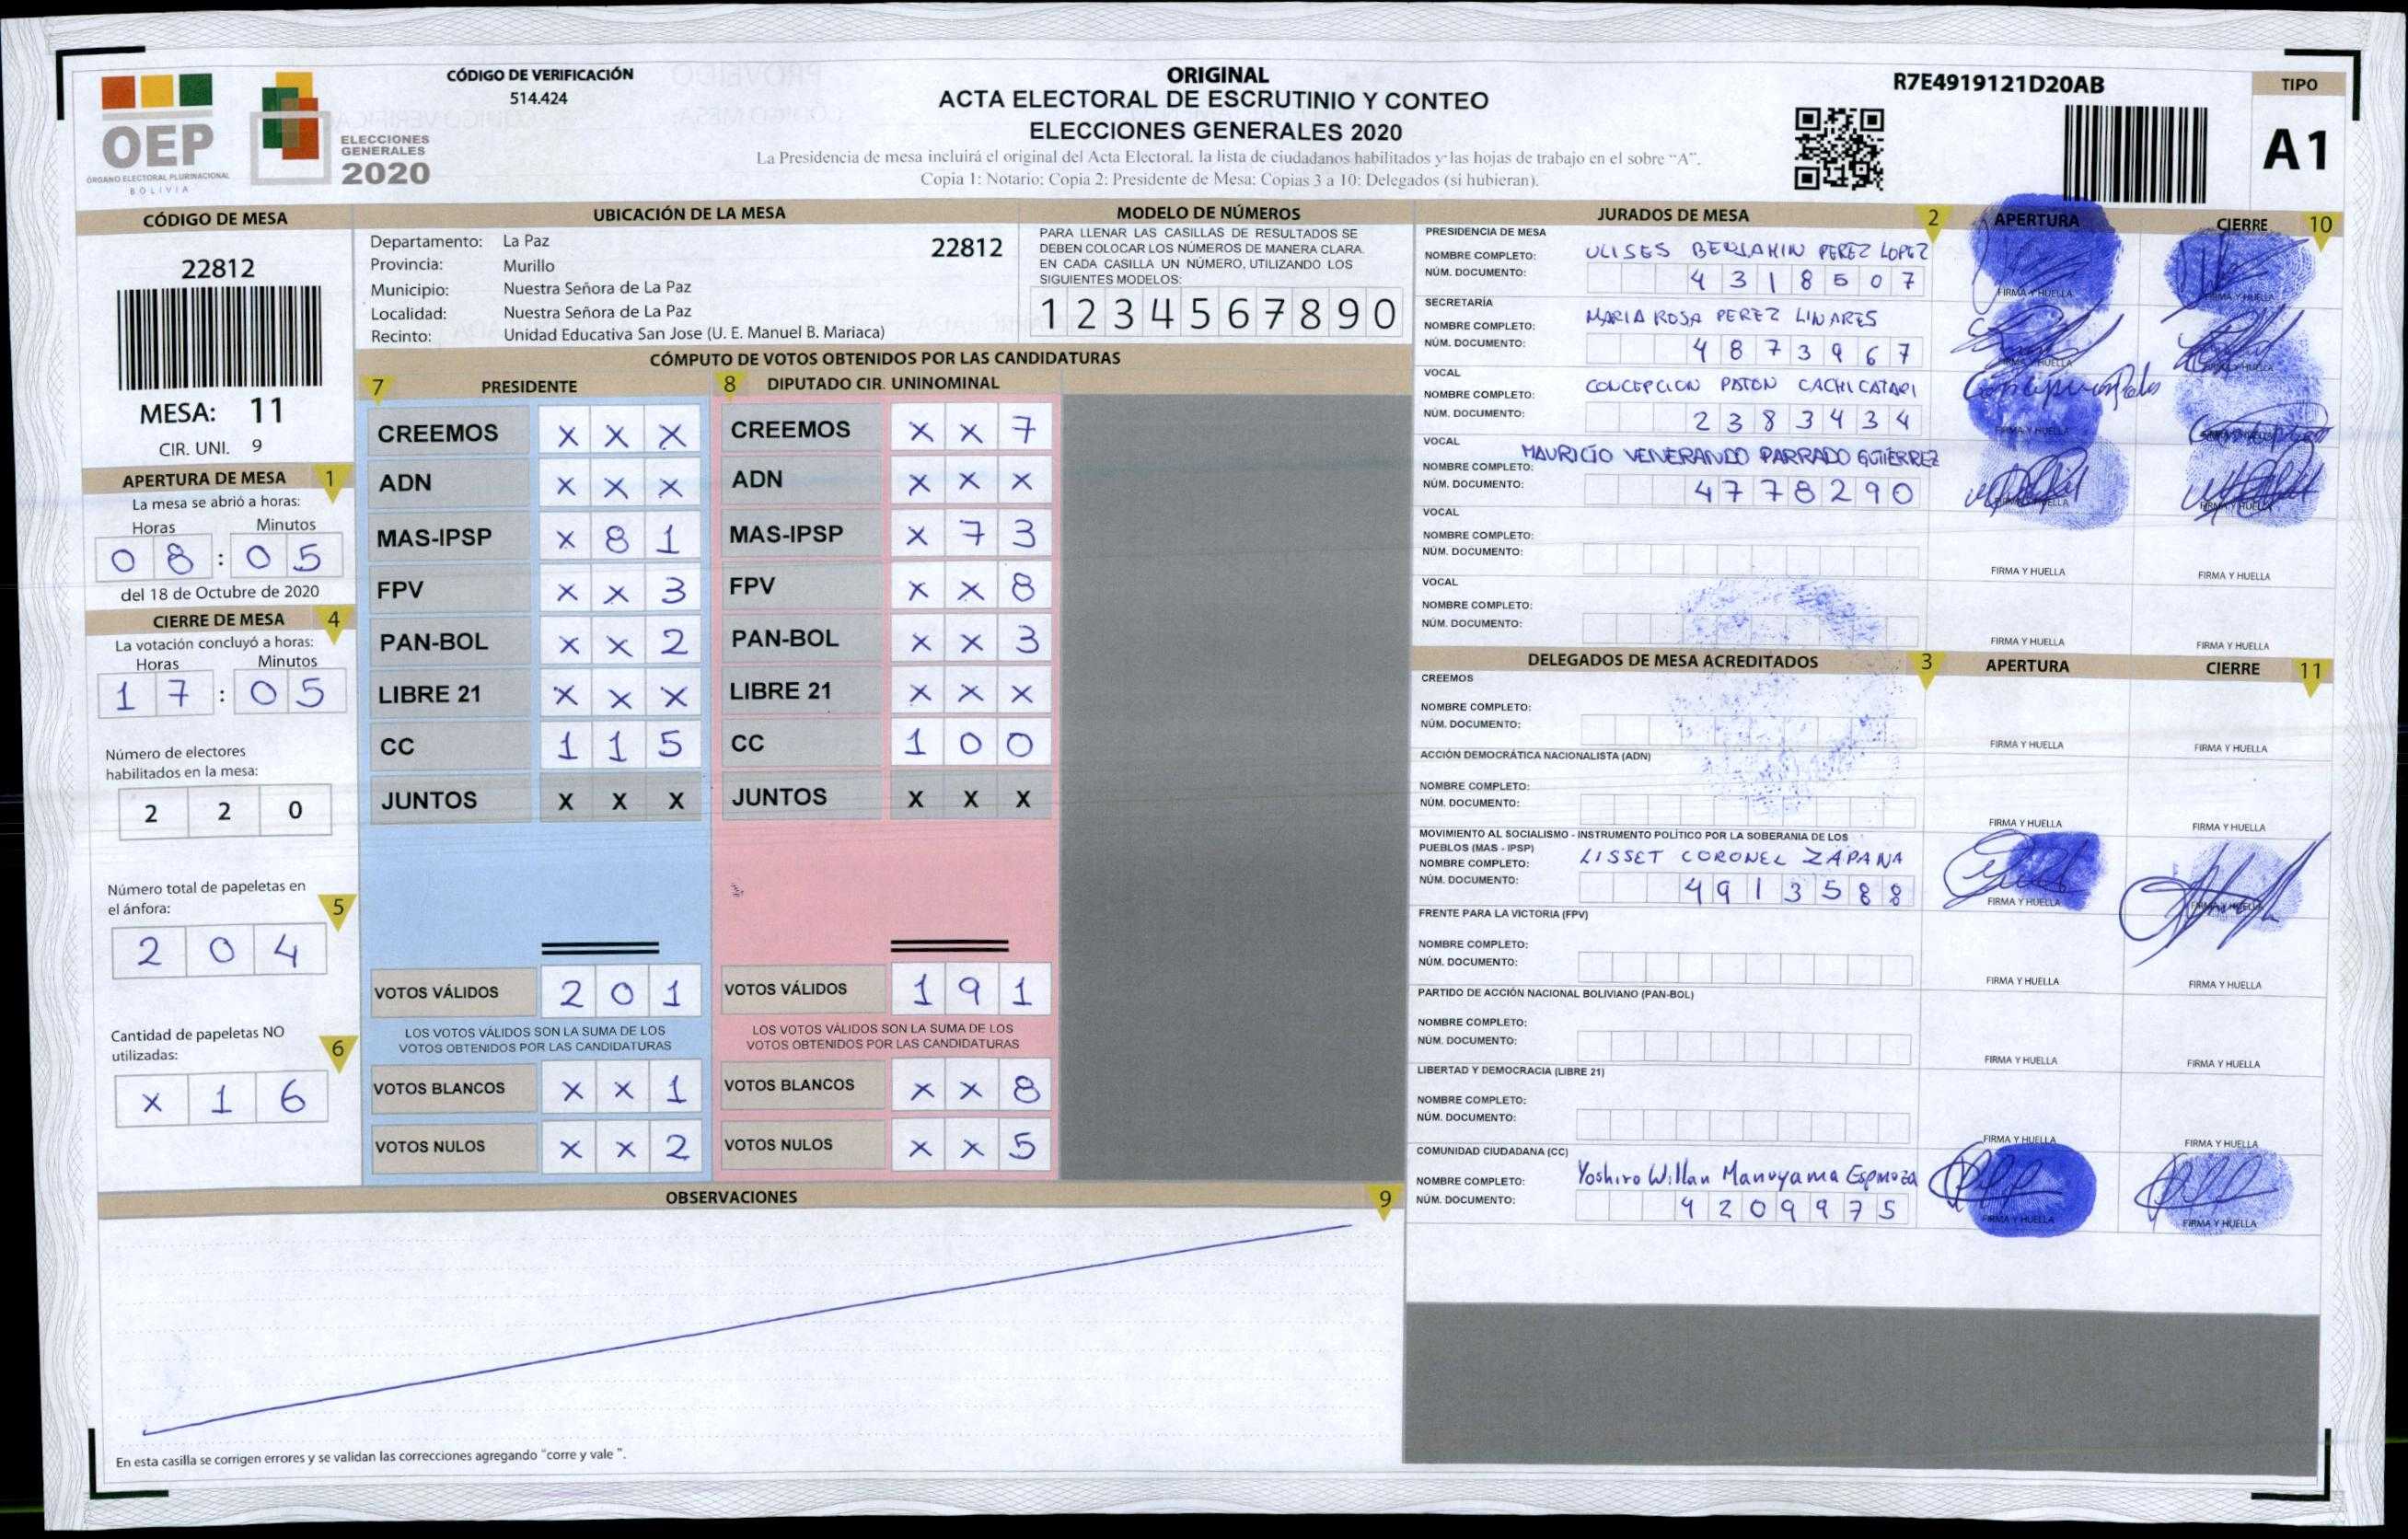 OEP
ÓRGANO ELECTORAL PLURINACIONAL
BOLIVIA
ELECCIONES
GENERALES
2020
CÓDIGO DE VERIFICACIÓN
514.424
ORIGINAL
ACTA ELECTORAL DE ESCRUTINIO Y CONTEO
ELECCIONES GENERALES 2020
La Presidencia de mesa incluirá el original del Acta Electoral, la lista de ciudadanos habilitados y las hojas de trabajo en el sobre "A".
Copia 1: Notario; Copia 2: Presidente de Mesa; Copias 3 a 10: Delegados (si hubieran).
R7E4919121D20AB
TIPO
A1
CÓDIGO DE MESA
22812
MESA: 11
CIR. UNI. 9
APERTURA DE MESA 1
La mesa se abrió a horas:
Horas Minutos
0 8 : 0 5
del 18 de Octubre de 2020
CIERRE DE MESA 4
La votación concluyó a horas:
Horas Minutos
1 7 : 0 5
Número de electores
habilitados en la mesa:
2 2 0
Número total de papeletas en
el ánfora: 5
2 0 4
Cantidad de papeletas NO
utilizadas: 6
X 1 6
UBICACIÓN DE LA MESA
Departamento: La Paz 22812
Provincia: Murillo
Municipio: Nuestra Señora de La Paz
Localidad: Nuestra Señora de La Paz
Recinto: Unidad Educativa San Jose (U. E. Manuel B. Mariaca)
MODELO DE NÚMEROS
PARA LLENAR LAS CASILLAS DE RESULTADOS SE
DEBEN COLOCAR LOS NÚMEROS DE MANERA CLARA.
EN CADA CASILLA UN NÚMERO, UTILIZANDO LOS
SIGUIENTES MODELOS:
1 2 3 4 5 6 7 8 9 0
CÓMPUTO DE VOTOS OBTENIDOS POR LAS CANDIDATURAS
7 PRESIDENTE
CREEMOS X X X
ADN X X X
MAS-IPSP X 8 1
FPV X X 3
PAN-BOL X X 2
LIBRE 21 X X X
CC 1 1 5
JUNTOS X X X
VOTOS VÁLIDOS 2 0 1
LOS VOTOS VÁLIDOS SON LA SUMA DE LOS
VOTOS OBTENIDOS POR LAS CANDIDATURAS
VOTOS BLANCOS X X 1
VOTOS NULOS X X 2
8 DIPUTADO CIR. UNINOMINAL
CREEMOS X X 7
ADN X X X
MAS-IPSP X 7 3
FPV X X 8
PAN-BOL X X 3
LIBRE 21 X X X
CC 1 0 0
JUNTOS X X X
VOTOS VÁLIDOS 1 9 1
LOS VOTOS VÁLIDOS SON LA SUMA DE LOS
VOTOS OBTENIDOS POR LAS CANDIDATURAS
VOTOS BLANCOS X X 8
VOTOS NULOS X X 5
OBSERVACIONES 9
En esta casilla se corrigen errores y se validan las correcciones agregando "corre y vale ".
JURADOS DE MESA 2 APERTURA CIERRE 10
PRESIDENCIA DE MESA
NOMBRE COMPLETO: ULISES BENJAMIN PEREZ LOPEZ
NÚM. DOCUMENTO: 4 3 1 8 5 0 7
FIRMA Y HUELLA FIRMA Y HUELLA
SECRETARÍA
NOMBRE COMPLETO: MARIA ROSA PEREZ LINARES
NÚM. DOCUMENTO: 4 8 7 3 9 6 7
FIRMA Y HUELLA FIRMA Y HUELLA
VOCAL
NOMBRE COMPLETO: CONCEPCION PATON CACHICATARI
NÚM. DOCUMENTO: 2 3 8 3 4 3 4
FIRMA Y HUELLA FIRMA Y HUELLA
VOCAL
NOMBRE COMPLETO: MAURICIO VENERANDO PARRADO GUTIERREZ
NÚM. DOCUMENTO: 4 7 7 8 2 9 0
FIRMA Y HUELLA FIRMA Y HUELLA
VOCAL
NOMBRE COMPLETO:
NÚM. DOCUMENTO:
FIRMA Y HUELLA FIRMA Y HUELLA
VOCAL
NOMBRE COMPLETO:
NÚM. DOCUMENTO:
FIRMA Y HUELLA FIRMA Y HUELLA
DELEGADOS DE MESA ACREDITADOS 3 APERTURA CIERRE 11
CREEMOS
NOMBRE COMPLETO:
NÚM. DOCUMENTO:
FIRMA Y HUELLA FIRMA Y HUELLA
ACCIÓN DEMOCRÁTICA NACIONALISTA (ADN)
NOMBRE COMPLETO:
NÚM. DOCUMENTO:
FIRMA Y HUELLA FIRMA Y HUELLA
MOVIMIENTO AL SOCIALISMO - INSTRUMENTO POLÍTICO POR LA SOBERANIA DE LOS
PUEBLOS (MAS - IPSP)
NOMBRE COMPLETO: LISSET CORONEL ZAPANA
NÚM. DOCUMENTO: 4 9 1 3 5 8 8
FIRMA Y HUELLA FIRMA Y HUELLA
FRENTE PARA LA VICTORIA (FPV)
NOMBRE COMPLETO:
NÚM. DOCUMENTO:
FIRMA Y HUELLA FIRMA Y HUELLA
PARTIDO DE ACCIÓN NACIONAL BOLIVIANO (PAN-BOL)
NOMBRE COMPLETO:
NÚM. DOCUMENTO:
FIRMA Y HUELLA FIRMA Y HUELLA
LIBERTAD Y DEMOCRACIA (LIBRE 21)
NOMBRE COMPLETO:
NÚM. DOCUMENTO:
FIRMA Y HUELLA FIRMA Y HUELLA
COMUNIDAD CIUDADANA (CC)
NOMBRE COMPLETO: Yoshiro Willan Manuyama Espinoza
NÚM. DOCUMENTO: 4 2 0 9 9 7 5
FIRMA Y HUELLA FIRMA Y HUELLA